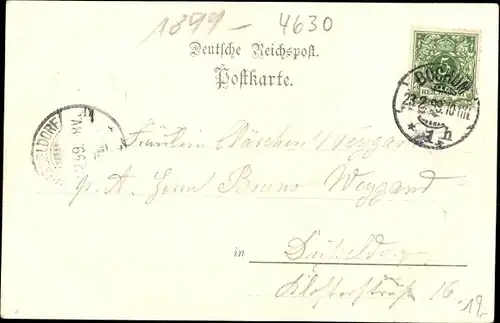 1899 - 4630
Deutsche Reichspost.
Postkarte.
5
REICHSPOST
BOCHUM
23.2.99.10
* 1 h
Fräulein Käschen Weygand
p. A. Herrn Bruno Weygand
in Düsseldorf
Klosterstraße 16
19.-